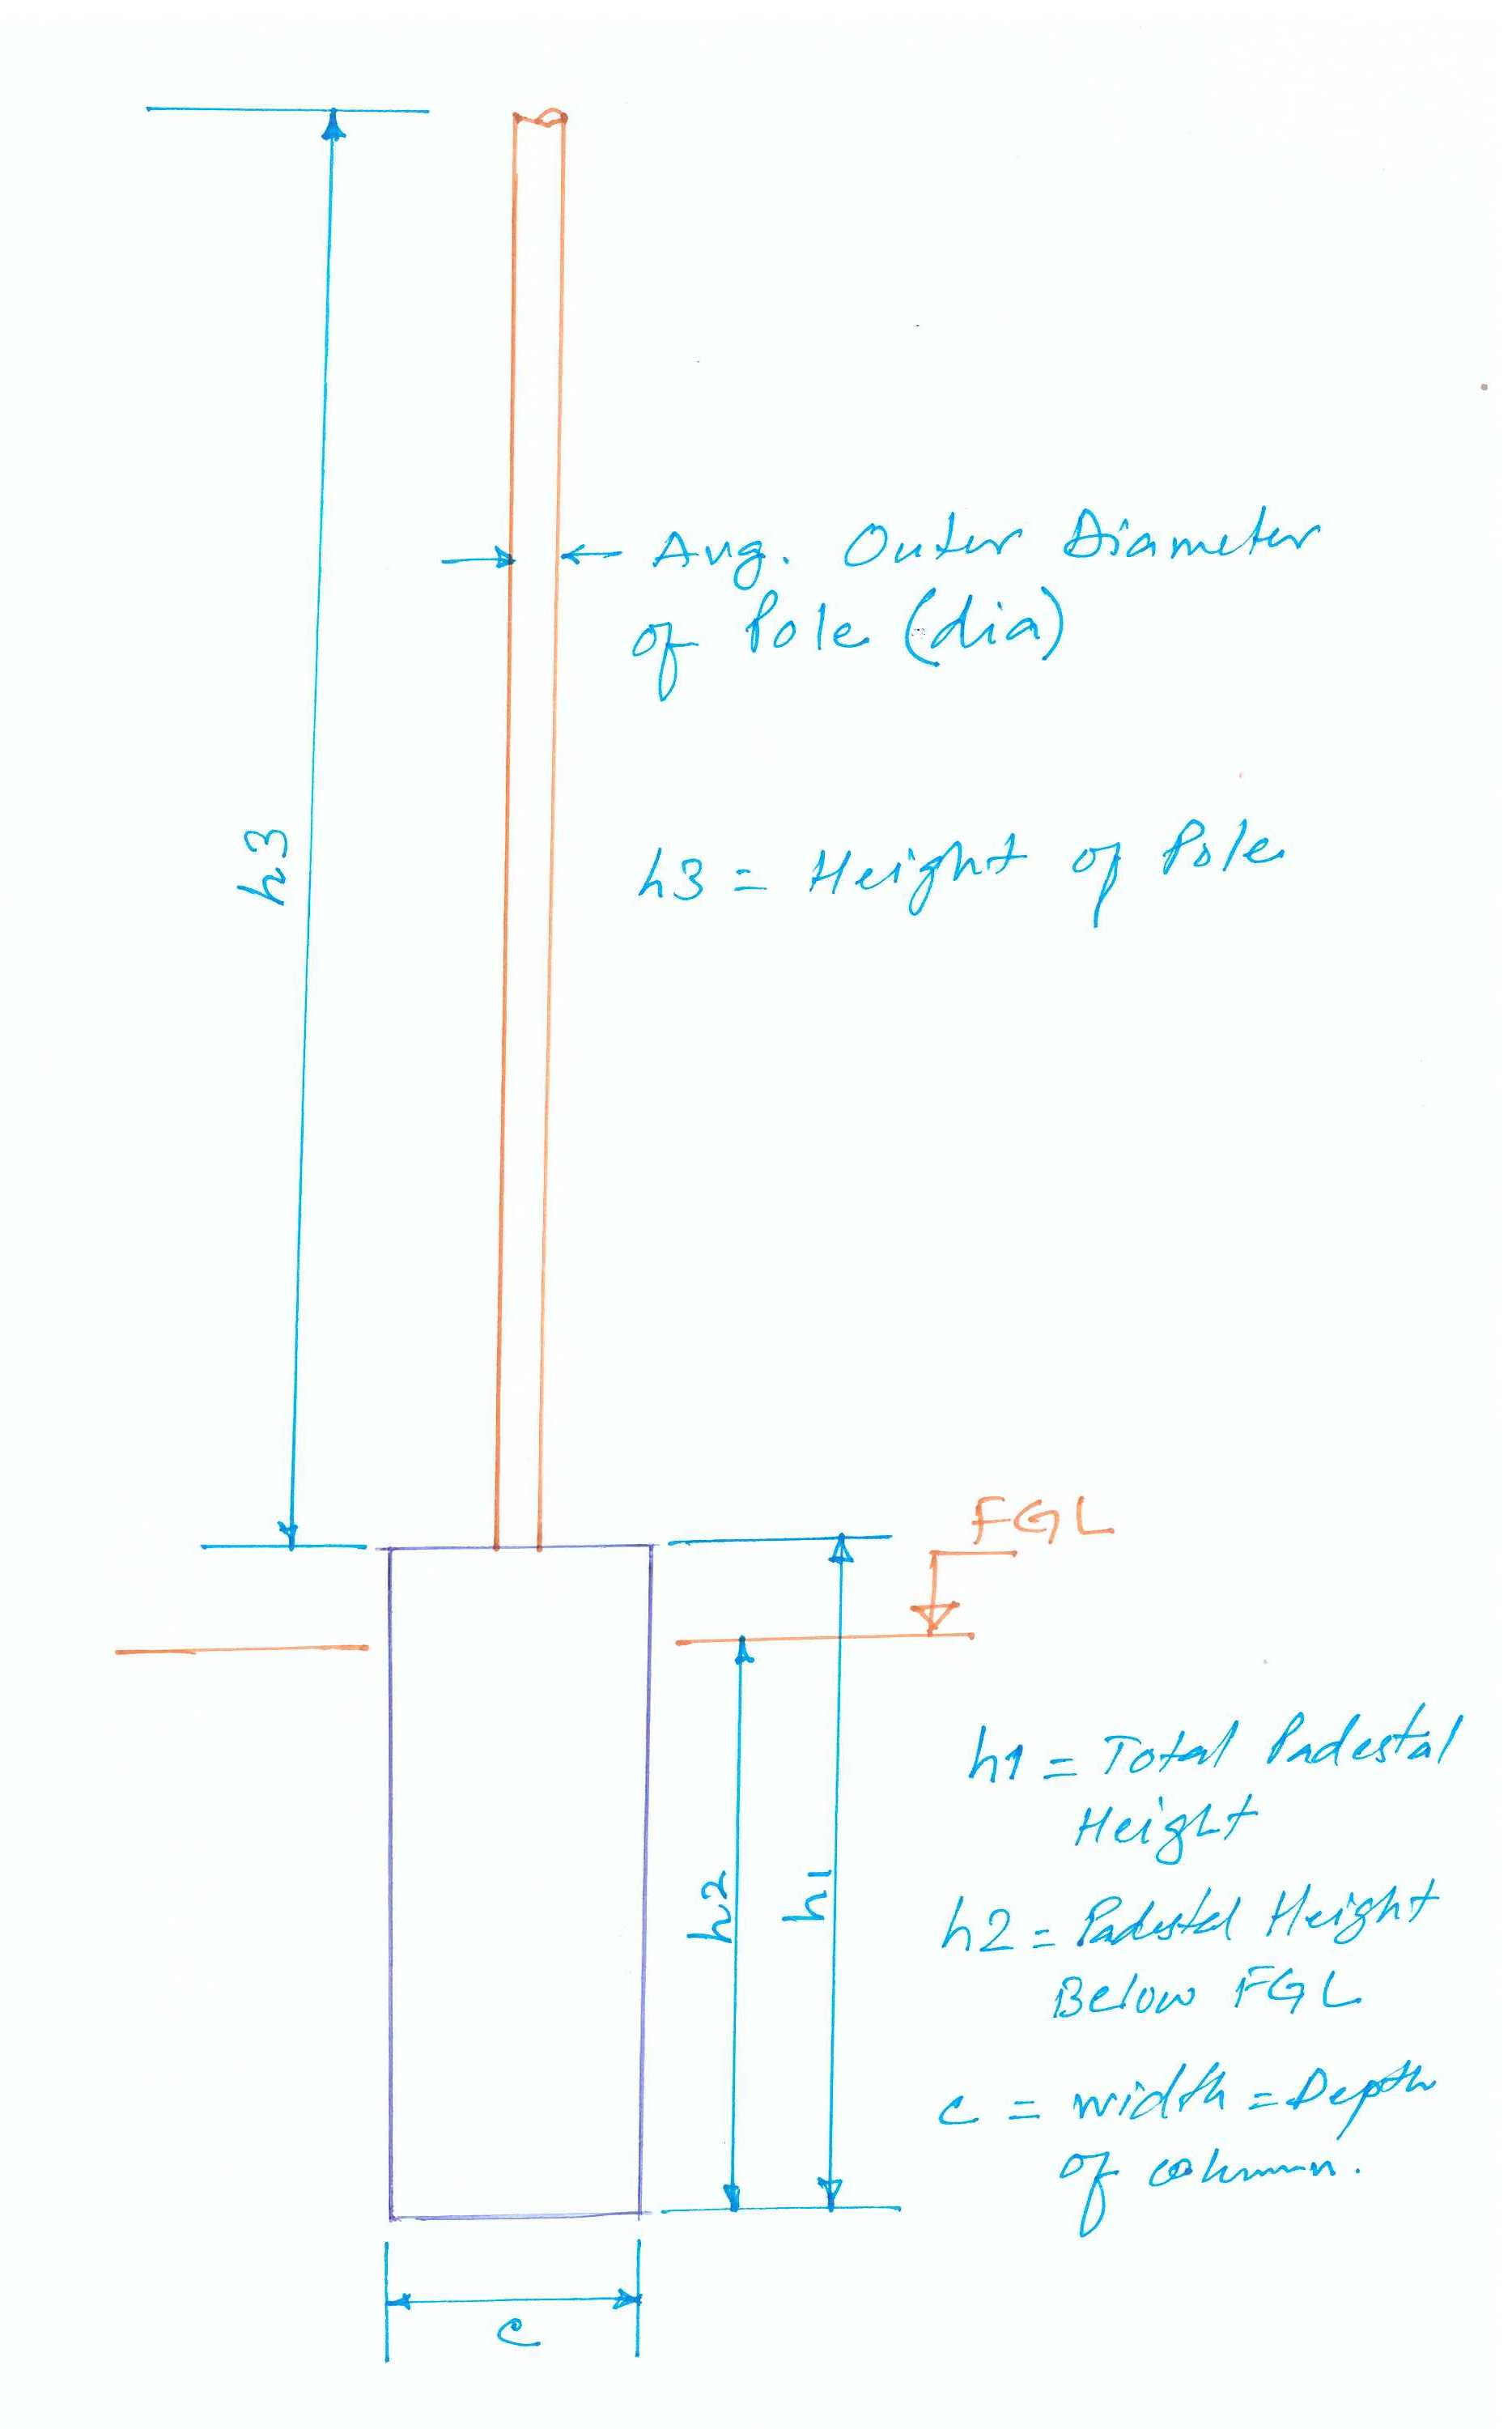 Avg. Outer Diameter
of Pole (dia)
h3
h3 = Height of Pole
FGL
h1 = Total Padestal
Height
h2
h1
h2 = Padestal Height
Below FGL
c = width = Depth
of column.
c